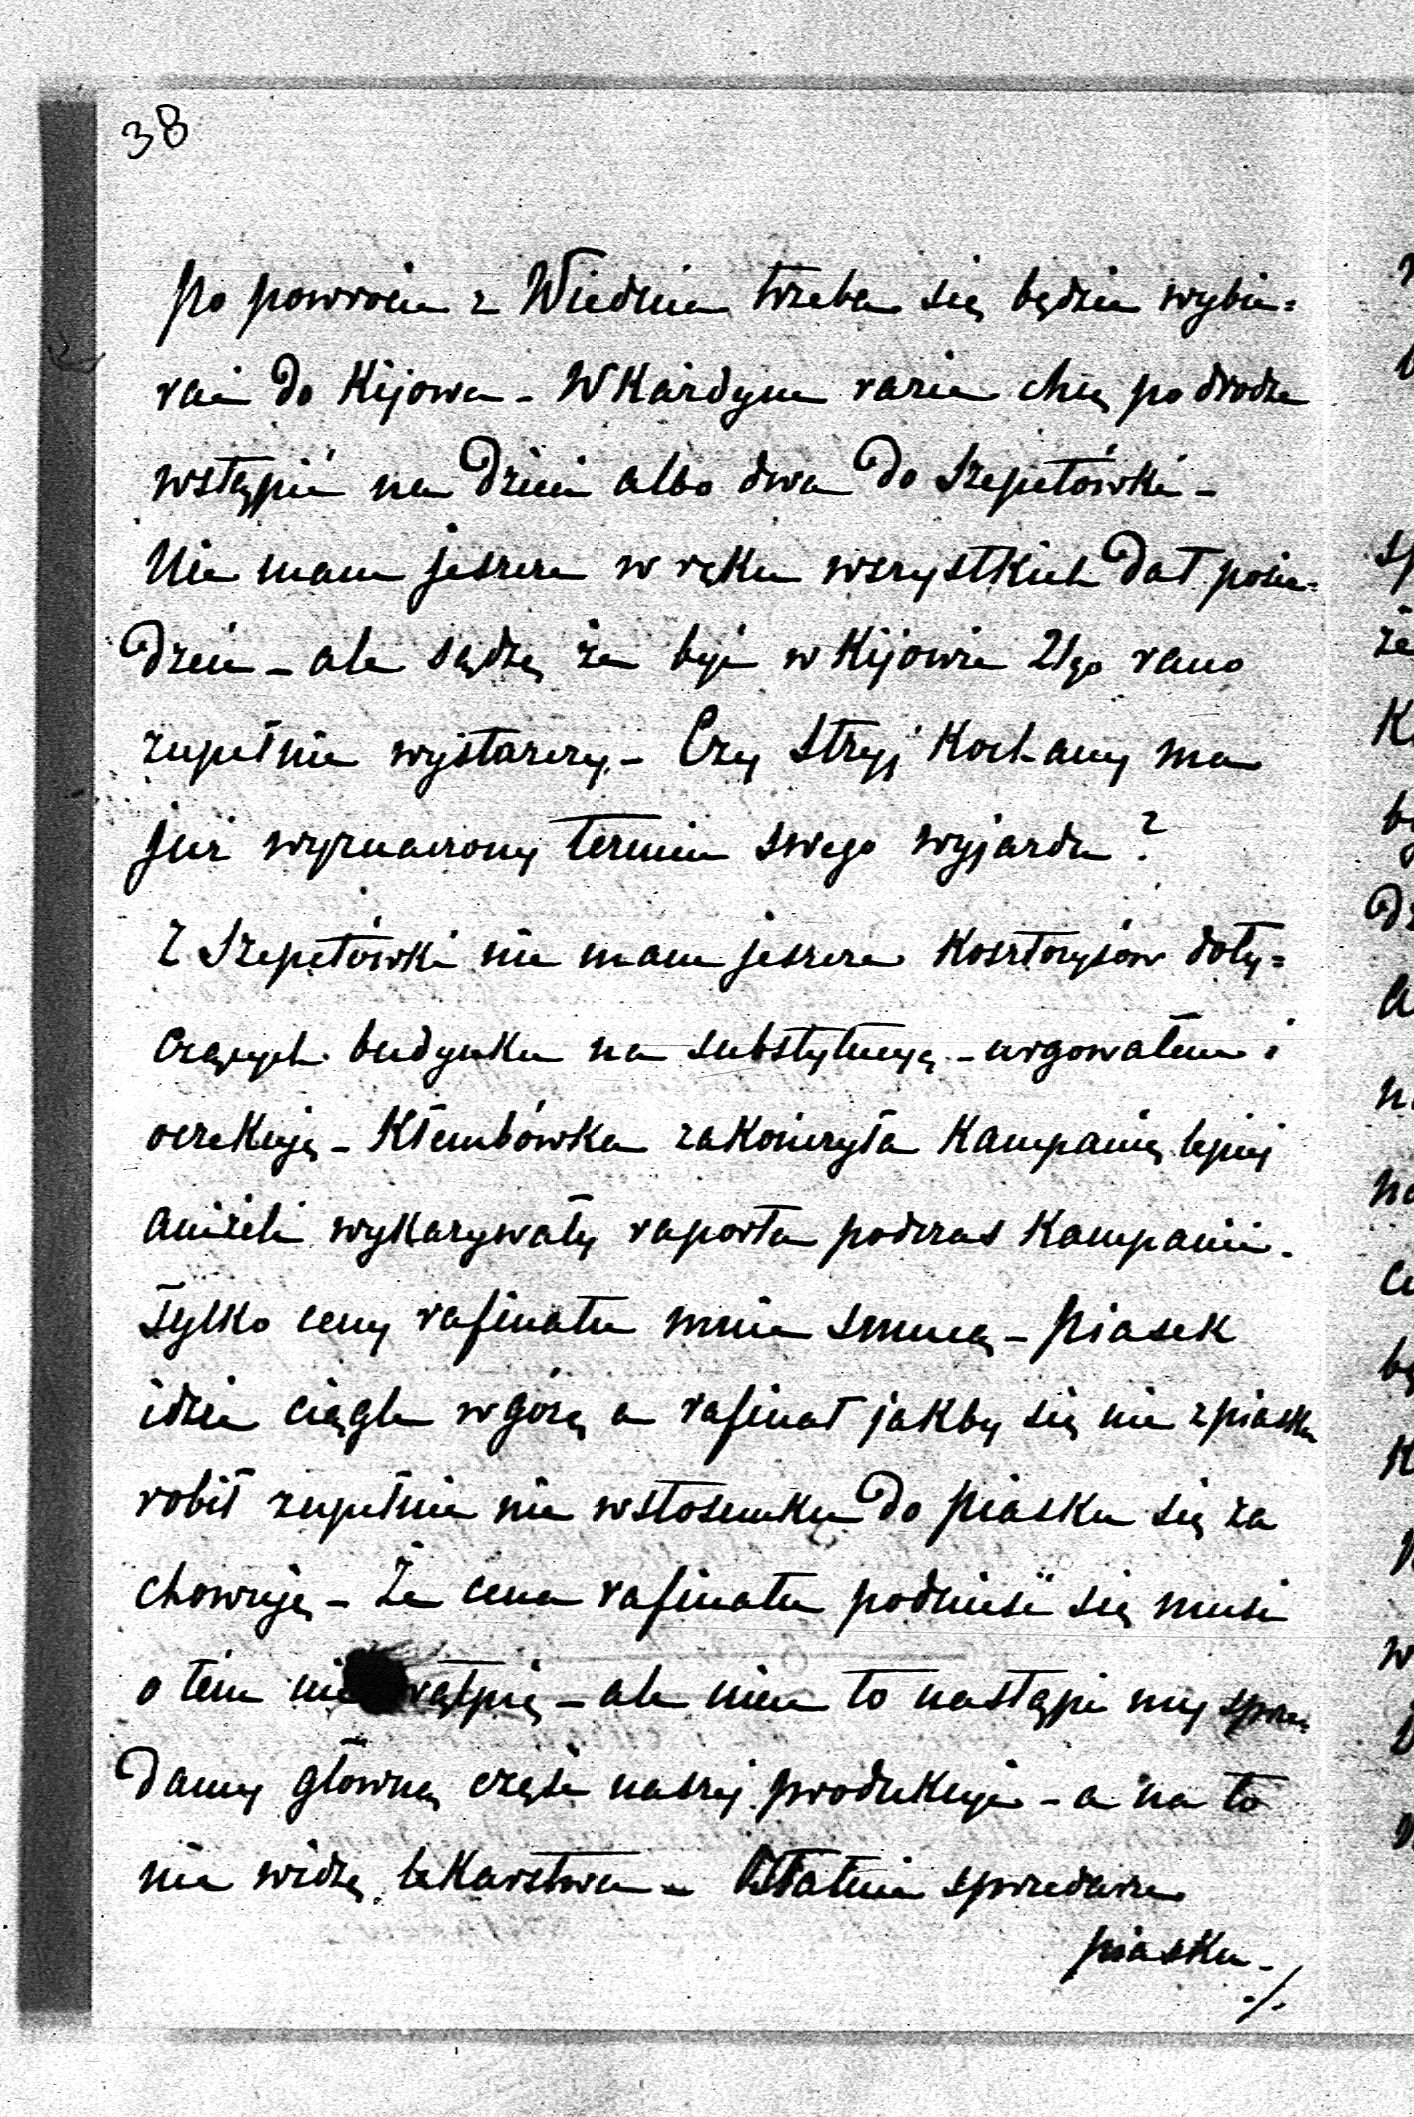 38
po powrocie z Wiednia trzeba się będzie wybie=
rać do Kijowa - W Każdym razie chcę po drodze
wstąpić na Dzień albo dwa Do Szepetówki -
Nie mam jeszcze w ręku wszystkich Dat posie=
Dzeń - ale sądzę że być w Kijowie 21go rano
zupełnie wystarczy - Czy Stryj Kochany ma
już wyznaczony termin swego wyjazdu?
Z Szepetówki nie mam jeszcze Kosztorysów doty=
czących budynku na substytucyą - urgowałem i
oczekuję - Kłembówka zakończyła Kampanię lepiej
aniżeli wykazywały raporta podczas Kampanii -
Tylko ceny rafinatu mnie smucą - Piasek
idzie ciągle w górę a rafinat jakby się nie z piasku
robił zupełnie nie w stosunku Do piasku się za
chowuje - Że cena rafinatu podnieść się musi
o tém nie wątpię - ale nim to nastąpi my sprze=
Damy główną część naszej produkcji - a na to
nie widzę lekarstwa - Ostatnie sprzedaże
piasku -
./.